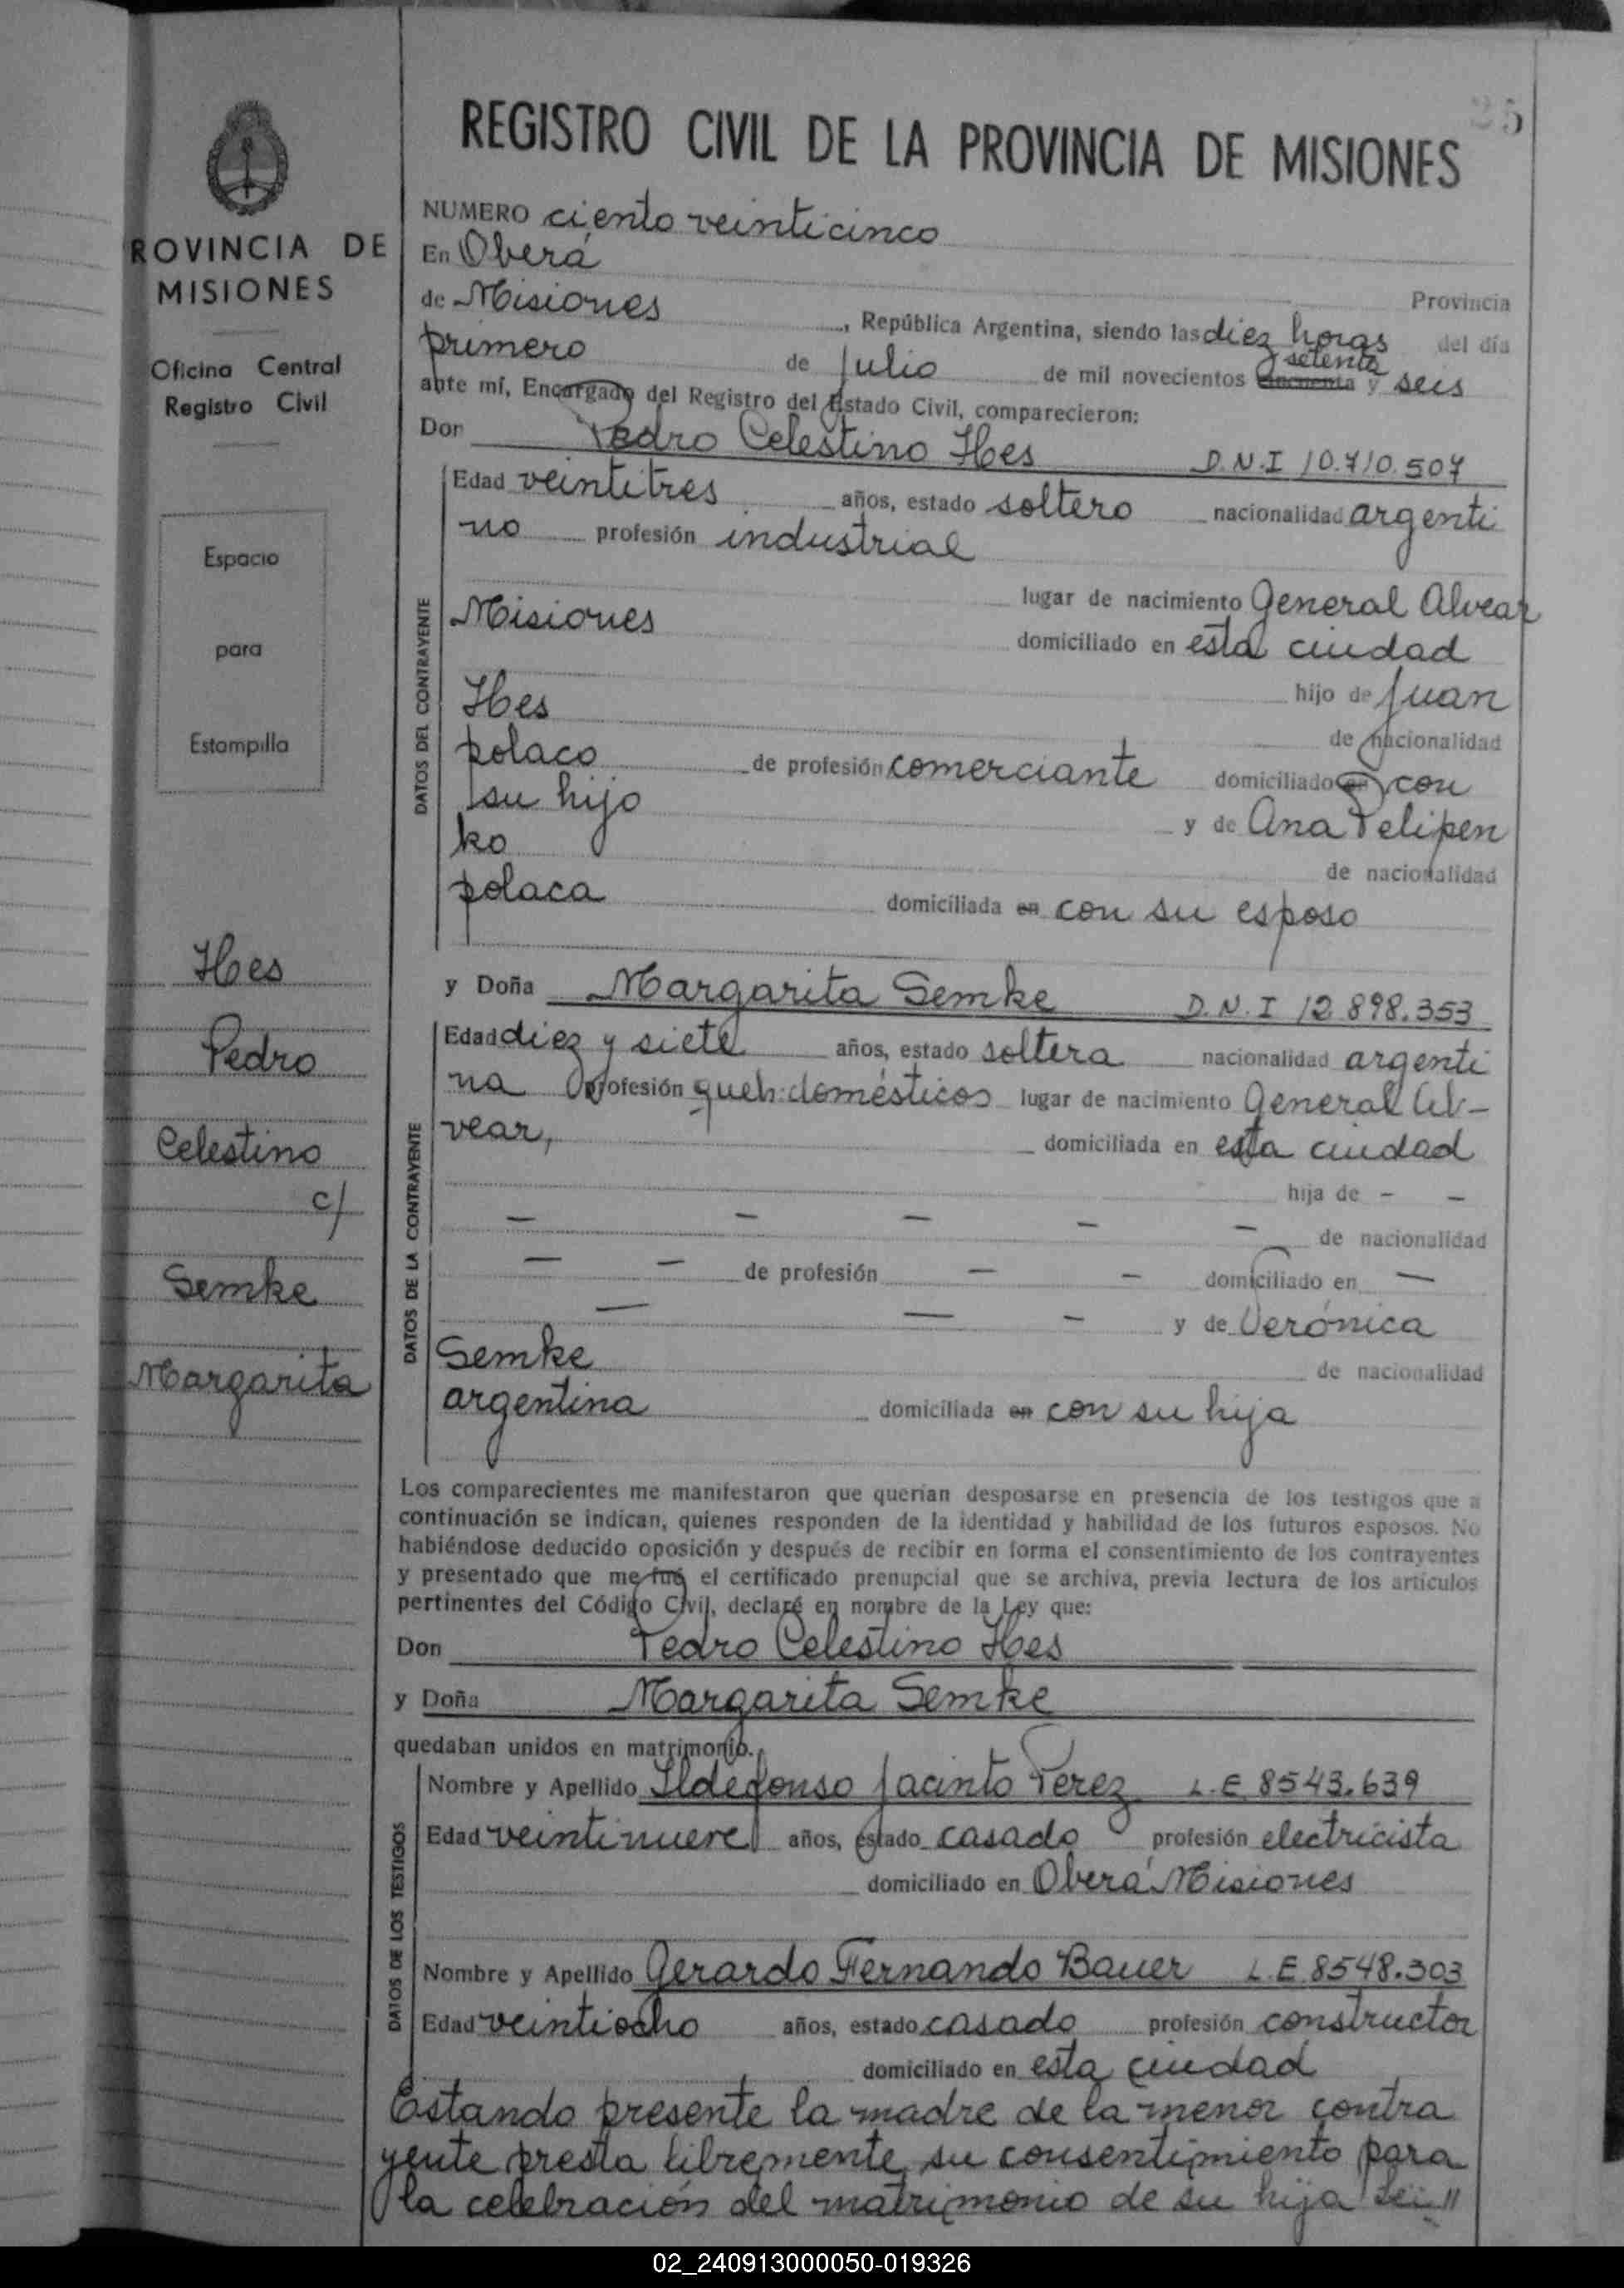 25
REGISTRO CIVIL DE LA PROVINCIA DE MISIONES
NUMERO ciento veinticinco
En Oberá
Provincia
de Misiones, República Argentina, siendo las diez horas del día
primero de Julio de mil novecientos cincuenta y setenta y seis
ante mí, Encargado del Registro del Estado Civil, comparecieron:
Don Pedro Celestino Hes D.N.I 10.710.507
DATOS DEL CONTRAYENTE
Edad veintitres años, estado soltero nacionalidad argenti
no profesión industrial
lugar de nacimiento General Alvear
Misiones domiciliado en esta ciudad
hijo de Juan
Hes de nacionalidad
polaco de profesión comerciante domiciliado en con
su hijo y de Ana Pelipen
ko de nacionalidad
polaca domiciliada en con su esposo
y Doña Margarita Semke D.N.I 12.898.353
DATOS DE LA CONTRAYENTE
Edad diez y siete años, estado soltera nacionalidad argenti
na profesión queh. domésticos lugar de nacimiento General Al-
vear, domiciliada en esta ciudad
hija de - -
- - - - - de nacionalidad
- - de profesión - - domiciliado en -
- - - y de Verónica
Semke de nacionalidad
argentina domiciliada en con su hija
Los comparecientes me manifestaron que querían desposarse en presencia de los testigos que a
continuación se indican, quienes responden de la identidad y habilidad de los futuros esposos. No
habiéndose deducido oposición y después de recibir en forma el consentimiento de los contrayentes
y presentado que me fué el certificado prenupcial que se archiva, previa lectura de los artículos
pertinentes del Código Civil, declaré en nombre de la Ley que:
Don Pedro Celestino Hes
y Doña Margarita Semke
quedaban unidos en matrimonio.
DATOS DE LOS TESTIGOS
Nombre y Apellido Ildefonso Jacinto Perez L.E 8543.639
Edad veintinueve años, estado casado profesión electricista
domiciliado en Oberá Misiones
Nombre y Apellido Gerardo Fernando Bauer L.E 8548.303
Edad veintiocho años, estado casado profesión constructor
domiciliado en esta ciudad
Estando presente la madre de la menor contra
yente presta libremente su consentimiento para
la celebración del matrimonio de su hija
ROVINCIA DE
MISIONES
Oficina Central
Registro Civil
Espacio
para
Estampilla
Hes
Pedro
Celestino
c/
Semke
Margarita
02_240913000050-019326